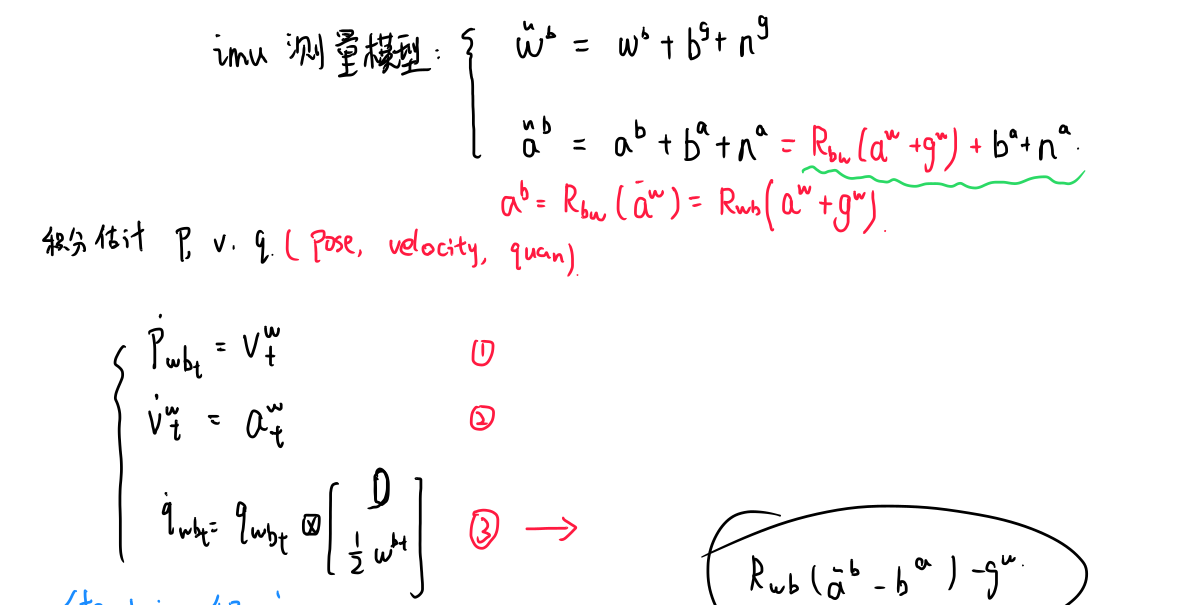 imu 测量模型: { w̃ᵇ = wᵇ + bᵍ + nᵍ
ãᵇ = aᵇ + bᵃ + nᵃ = R_bw (aʷ + gʷ) + bᵃ + nᵃ.
aᵇ = R_bw (āʷ) = R_wb (aʷ + gʷ).
积分估计 p, v. q. ( pose, velocity, quan).
{ ṗ_wbₜ = vₜʷ ①
v̇ₜʷ = aₜʷ ②
q̇_wbₜ = q_wbₜ ⊠ [ 0
½ wᵇᵗ ] ③ →
R_wb (āᵇ - bᵃ) - gʷ.